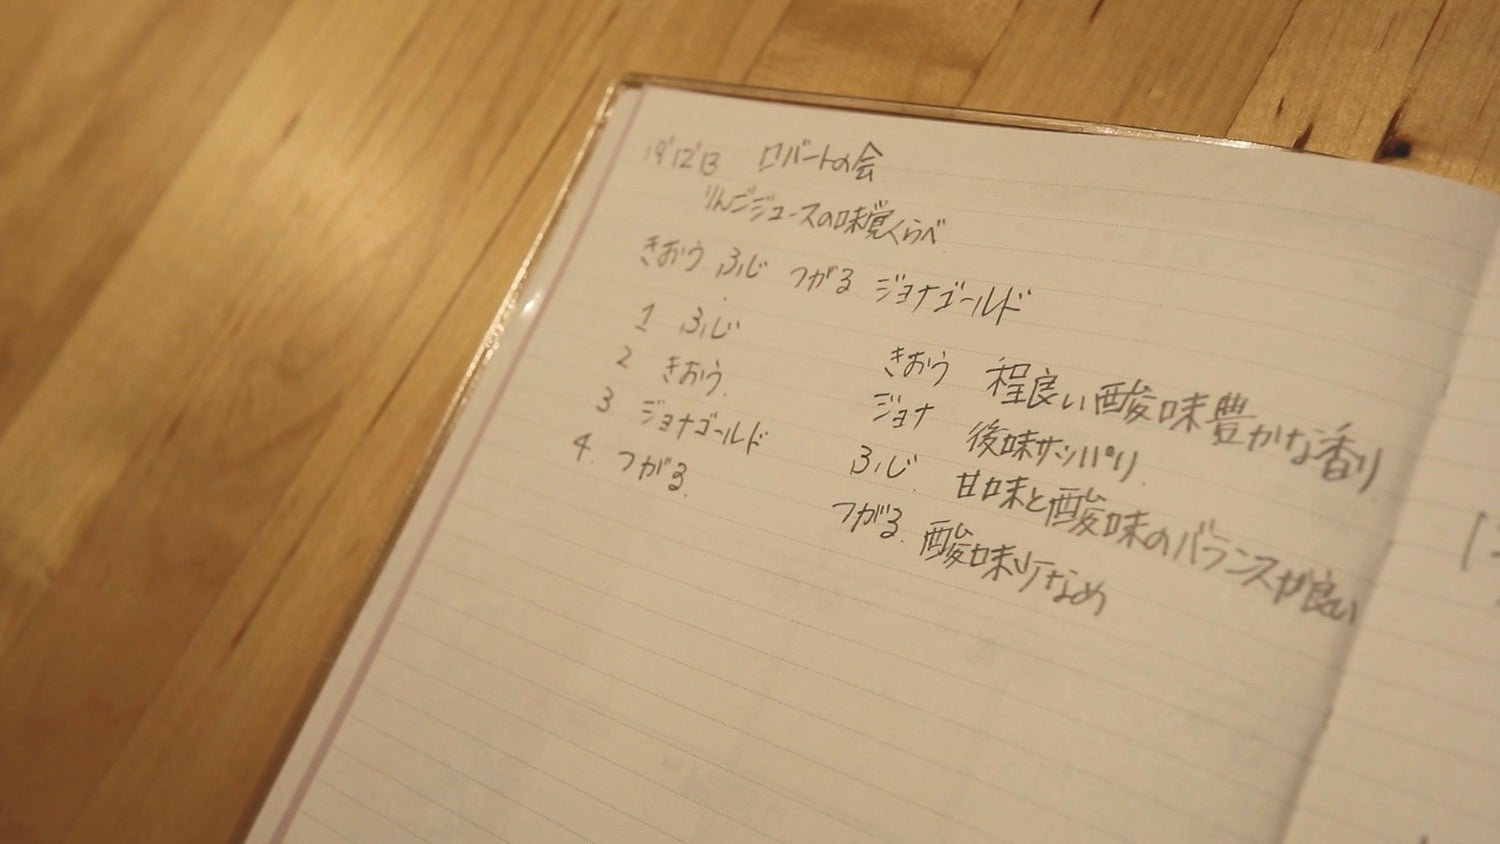 19'12'13 ロバートの会
りんごジュースの味覚くらべ
きおう ふじ つがる ジョナゴールド
1 ふじ
2 きおう
3 ジョナゴールド
4. つがる
きおう 程良い酸味豊かな香り
ジョナ 後味サッパリ
ふじ 甘味と酸味のバランスが良い
つがる 酸味少なめ